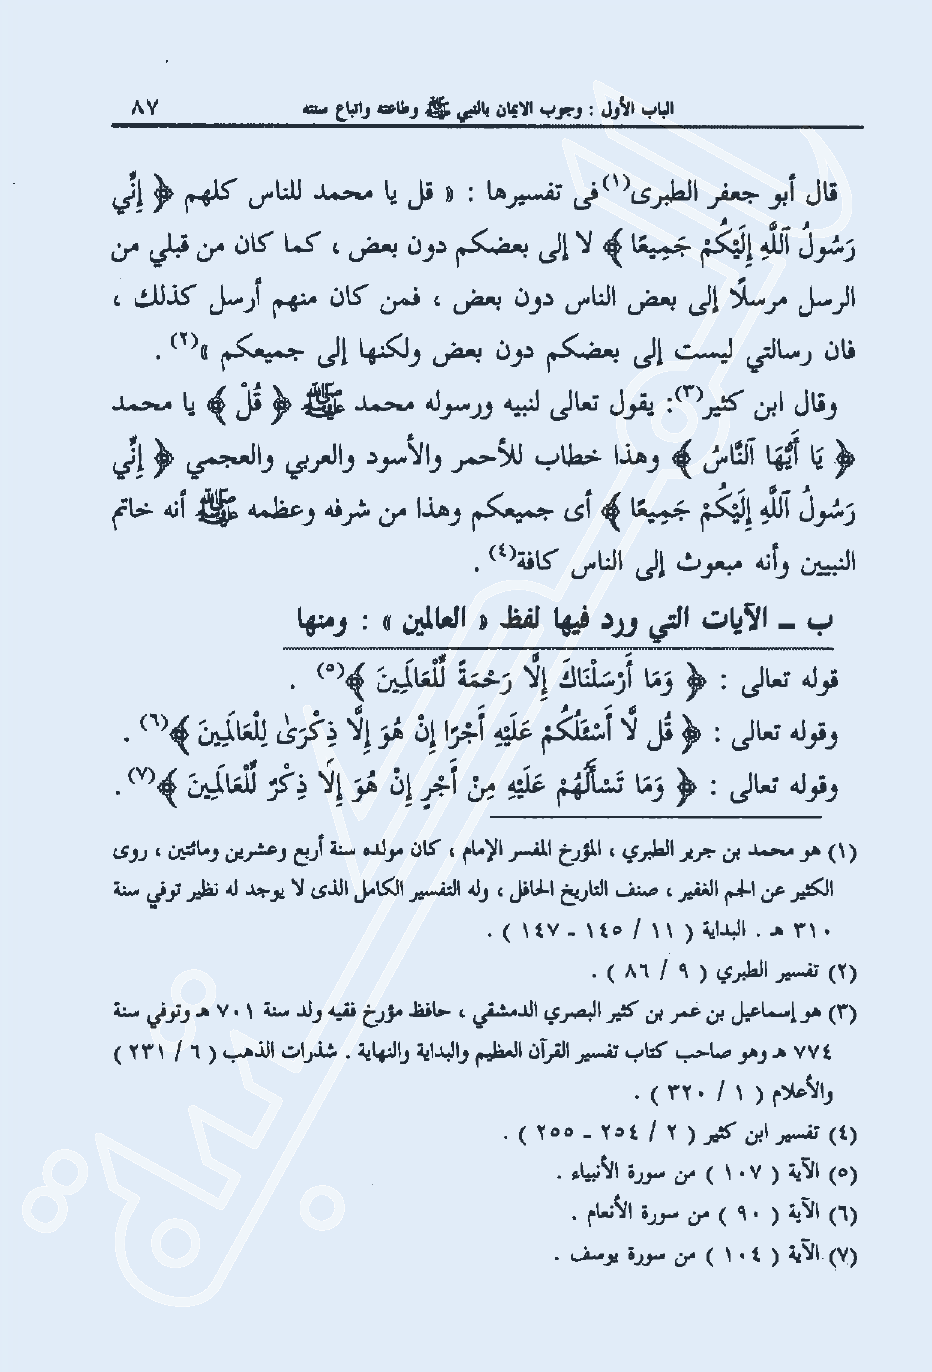 الباب الأول : وجوب الايمان بالنبي ﷺ وطاعته واتباع سنته ٨٧
قال أبو جعفر الطبرى(١)فى تفسيرها : « قل يا محمد للناس كلهم ﴿ إِنِّي
رَسُولُ ٱللَّهِ إِلَيْكُمْ جَمِيعًا ﴾ لا إلى بعضكم دون بعض ، كما كان من قبلي من
الرسل مرسلًا إلى بعض الناس دون بعض ، فمن كان منهم أرسل كذلك ،
فان رسالتي ليست إلى بعضكم دون بعض ولكنها إلى جميعكم »(٢) .
وقال ابن كثير(٣): يقول تعالى لنبيه ورسوله محمد ﷺ ﴿ قُلْ ﴾ يا محمد
﴿ يَا أَيُّهَا ٱلنَّاسُ ﴾ وهذا خطاب للأحمر والأسود والعربي والعجمي ﴿ إِنِّي
رَسُولُ ٱللَّهِ إِلَيْكُمْ جَمِيعًا ﴾ أى جميعكم وهذا من شرفه وعظمه ﷺ أنه خاتم
النبيين وأنه مبعوث إلى الناس كافة(٤) .
ب ــ الآيات التي ورد فيها لفظ « العالمين » : ومنها
قوله تعالى : ﴿ وَمَا أَرْسَلْنَاكَ إِلَّا رَحْمَةً لِّلْعَالَمِينَ ﴾(٥) .
وقوله تعالى : ﴿ قُل لَّا أَسْئَلُكُمْ عَلَيْهِ أَجْرًا إِنْ هُوَ إِلَّا ذِكْرَىٰ لِلْعَالَمِينَ ﴾(٦) .
وقوله تعالى : ﴿ وَمَا تَسْأَلُهُمْ عَلَيْهِ مِنْ أَجْرٍ إِنْ هُوَ إِلَّا ذِكْرٌ لِّلْعَالَمِينَ ﴾(٧) .
(١) هو محمد بن جرير الطبري ، المؤرخ المفسر الإمام ، كان مولده سنة أربع وعشرين ومائتين ، روى
الكثير عن الجم الغفير ، صنف التاريخ الحافل ، وله التفسير الكامل الذى لا يوجد له نظير توفي سنة
٣١٠ هـ . البداية ( ١١ / ١٤٥ ــ ١٤٧ ) .
(٢) تفسير الطبري ( ٩ / ٨٦ ) .
(٣) هو إسماعيل بن عمر بن كثير البصري الدمشقي ، حافظ مؤرخ فقيه ولد سنة ٧٠١ هـ وتوفي سنة
٧٧٤ هـ وهو صاحب كتاب تفسير القرآن العظيم والبداية والنهاية . شذرات الذهب ( ٦ / ٢٣١ )
والأعلام ( ١ / ٣٢٠ ) .
(٤) تفسير ابن كثير ( ٢ / ٢٥٤ ــ ٢٥٥ ) .
(٥) الآية ( ١٠٧ ) من سورة الأنبياء .
(٦) الآية ( ٩٠ ) من سورة الأنعام .
(٧) الآية ( ١٠٤ ) من سورة يوسف .